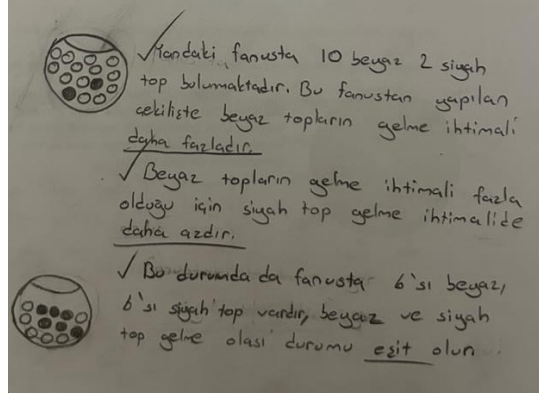 ✓Yandaki fanusta 10 beyaz 2 siyah
top bulunmaktadır. Bu fanustan yapılan
çekilişte beyaz topların gelme ihtimali
daha fazladır.
✓ Beyaz topların gelme ihtimali fazla
olduğu için siyah top gelme ihtimalide
daha azdır.
✓ Bu durumda da fanusta 6'sı beyaz,
6'sı siyah top vardır, beyaz ve siyah
top gelme olası durumu eşit olur